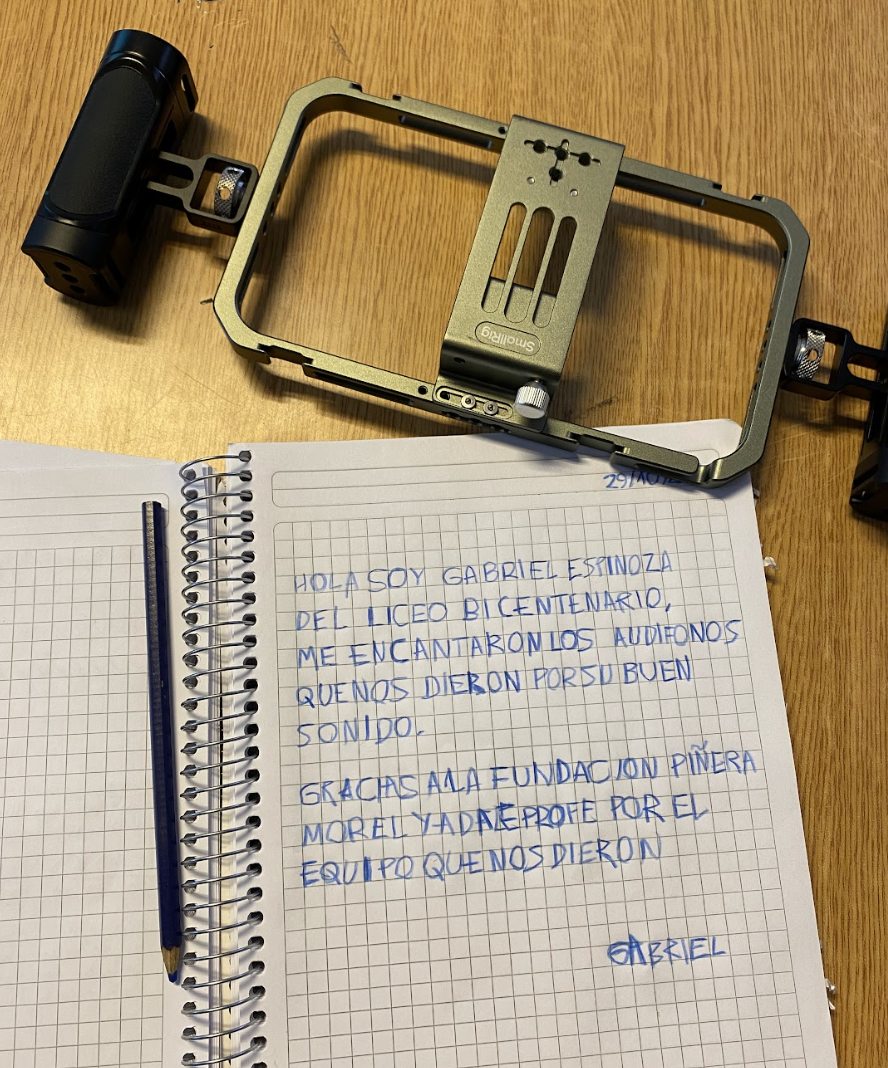 SmallRig
29/10/
HOLA SOY GABRIEL ESPINOZA
DEL LICEO BICENTENARIO,
ME ENCANTARON LOS AUDIFONOS
QUE NOS DIERON POR SU BUEN
SONIDO.
GRACIAS A LA FUNDACION PIÑERA
MOREL Y ADALEPROFE POR EL
EQUIPO QUE NOS DIERON
GABRIEL